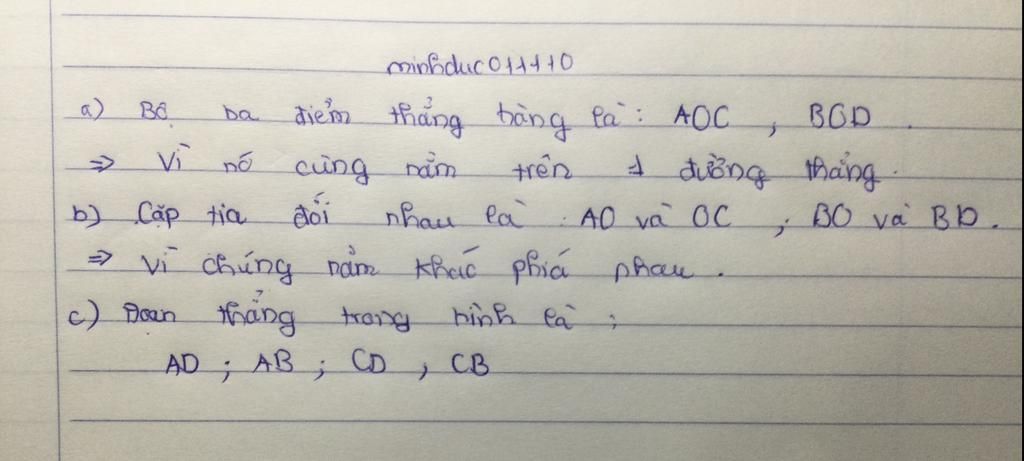 minhduc011110
a) Bộ ba điểm thẳng hàng là : AOC , BOD .
=> Vì nó cùng nằm trên 1 đường thẳng .
b) Cặp tia đối nhau là : AO và OC ; BO và BD .
=> Vì chúng nằm khác phía nhau .
c) Đoạn thẳng trong hình là :
AD ; AB ; CD , CB